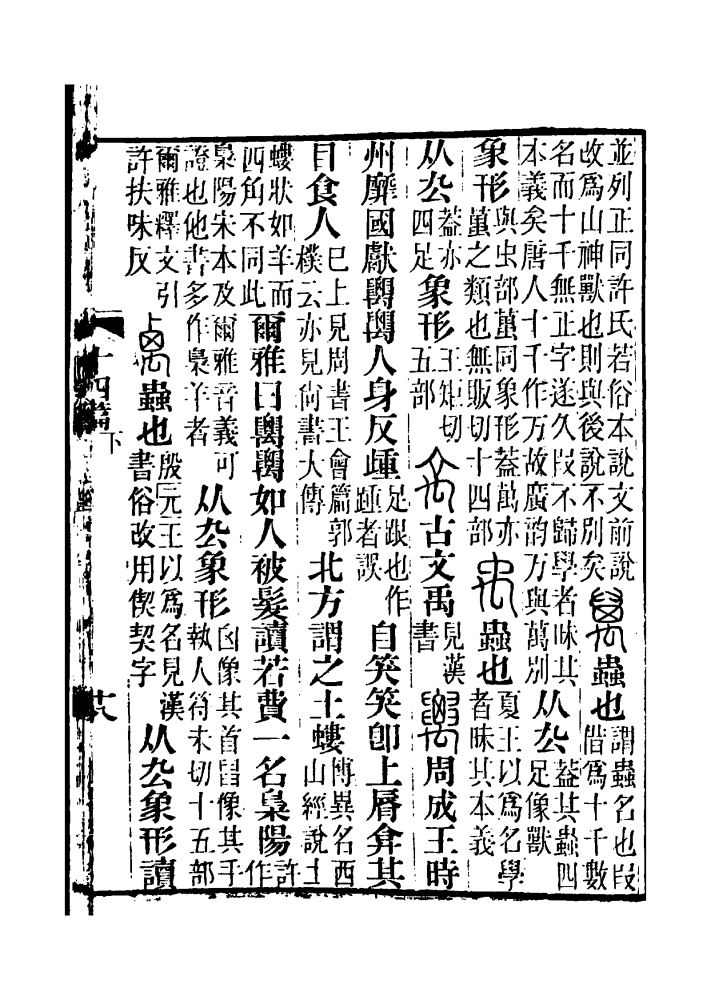 並列正同許氏若俗本說文前說改爲山神獸也則與後說不別矣萬蟲也謂蟲名也叚借爲十千數
名而十千無正字遂久叚不歸學者昧其本義矣唐人十千作万故廣韵万與萬別从厹蓋其蟲四足像獸
象形與虫部蠆同象形蓋萬亦蠆之類也無販切十四部禹蟲也夏王以爲名學者昧其本義
从厹蓋亦四足象形王矩切五部古文禹見漢書𥝋周成王時
州靡國獻𥝋𥝋人身反踵足跟也作踵者誤自笑笑卽上脣弇其
目食人巳上見周書王會篇郭樸云亦見尙書大傳北方謂之土螻博異名西山經說土
螻狀如羊而四角不同此爾雅曰𥝋𥝋如人被髮讀若費一名梟陽許作
梟陽宋本及爾雅音義可證也他書多作梟羊者从厹象形囟像其首𦥑像其手執人符未切十五部
爾雅釋文引許扶味反禼蟲也殷元王以爲名見漢書俗改用偰契字从厹象形讀
十四篇下
十八